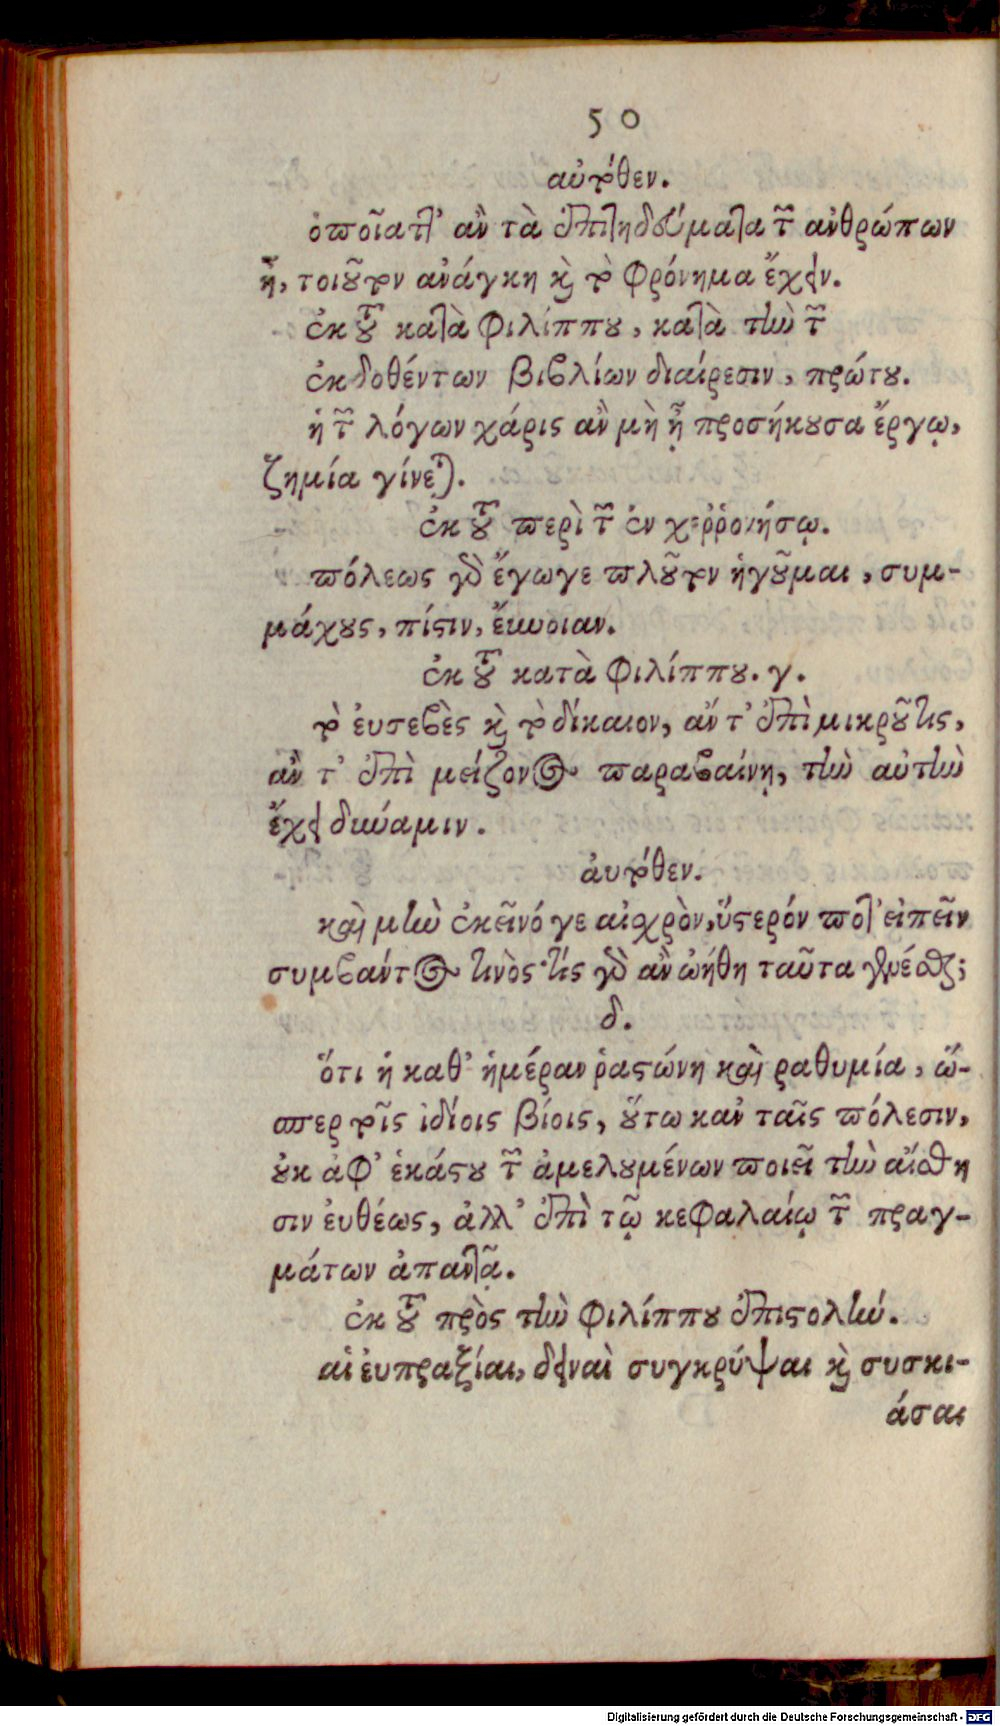 50
αὐτόθεν.
ὁποῖα τ' ἂν τὰ ἐπιτηδεύματα τῶν ἀνθρώπων
ᾖ, τοιοῦτον ἀνάγκη καὶ τὸ φρόνημα ἔχειν.
ἐκ τοῦ κατὰ Φιλίππου, κατὰ τὴν τῶν
ἐκδοθέντων βιβλίων διαίρεσιν, πρώτου.
ἡ τῶν λόγων χάρις ἂν μὴ ᾖ προσήκουσα ἔργῳ,
ζημία γίνεται.
ἐκ τοῦ περὶ τῶν ἐν χεῤῥονήσῳ.
πόλεως γὰρ ἔγωγε πλοῦτον ἡγοῦμαι, συμ-
μάχους, πίστιν, ἔυνοιαν.
ἐκ τοῦ κατὰ Φιλίππου. γ.
τὸ ἐυσεβὲς καὶ τὸ δίκαιον, ἄν τ' ἐπὶ μικροῦ τις,
ἂν τ' ἐπὶ μείζονος παραβαίνῃ, τὴν αὐτὴν
ἔχει δύναμιν.
ἀυτόθεν.
καὶ μὴν ἐκεῖνό γε αἰσχρὸν, ὕστερόν ποτ' εἰπεῖν
συμβάντος τινὸς· τίς γὰρ ἂν ὠήθη ταῦτα γενέσθαι;
δ.
ὅτι ἡ καθ' ἡμέραν ῥαστώνη καὶ ῥαθυμία, ὥ-
σπερ τοῖς ἰδίοις βίοις, οὕτω καὶν ταῖς πόλεσιν,
οὐκ ἀφ' ἑκάστου τῶν ἀμελουμένων ποιεῖ τὴν αἴσθη
σιν ἐυθέως, ἀλλ' ἐπὶ τῷ κεφαλαίῳ τῶν πραγ-
μάτων ἀπαντᾷ.
ἐκ τοῦ πρὸς τὴν Φιλίππου ἐπιστολήν.
αἱ ἐυπραξίαι, δειναὶ συγκρύψαι καὶ συσκι-
άσαι
Digitalisierung gefördert durch die Deutsche Forschungsgemeinschaft - DFG